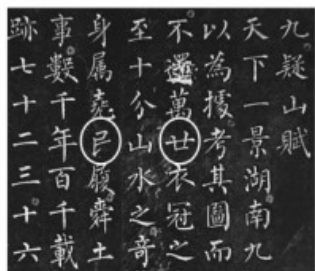 九疑山賦
天下一景湖南九
以為據考其圖而
不還萬廿衣冠之
至十分山水之奇
身属尭㠯履舜土
事數千年百千載
跡七十二三十六